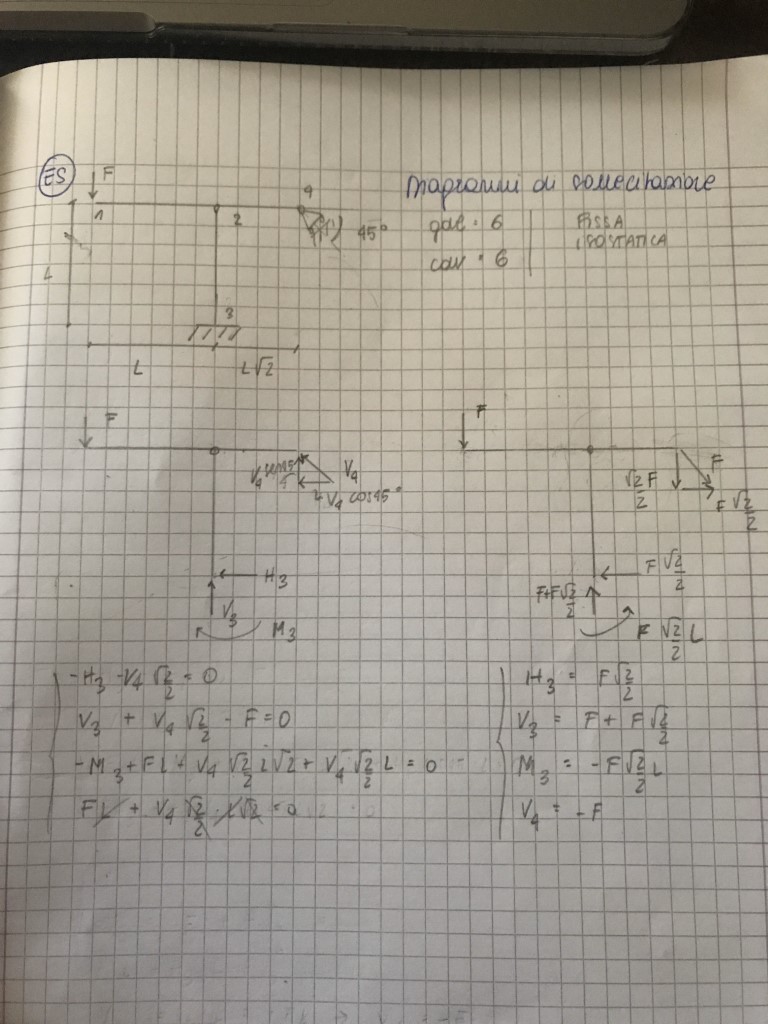 ES
F
Diagrammi di sollecitazione
1
2
4
45°
gdl = 6
FISSA
ISOSTATICA
cdv = 6
L
3
L
L√2
F
V₄ sen45°
V₄
V₄ cos45°
H₃
V₃
M₃
F
F
√2/2 F
F √2/2
F √2/2
F+F√2/2
F √2/2 L
-H₃ -V₄ √2/2 = 0
V₃ + V₄ √2/2 - F = 0
-M₃ + FL + V₄ √2/2 L√2 + V₄ √2/2 L = 0
FL + V₄ √2/2 · L√2 = 0
H₃ = F√2/2
V₃ = F + F√2/2
M₃ = -F√2/2 L
V₄ = -F